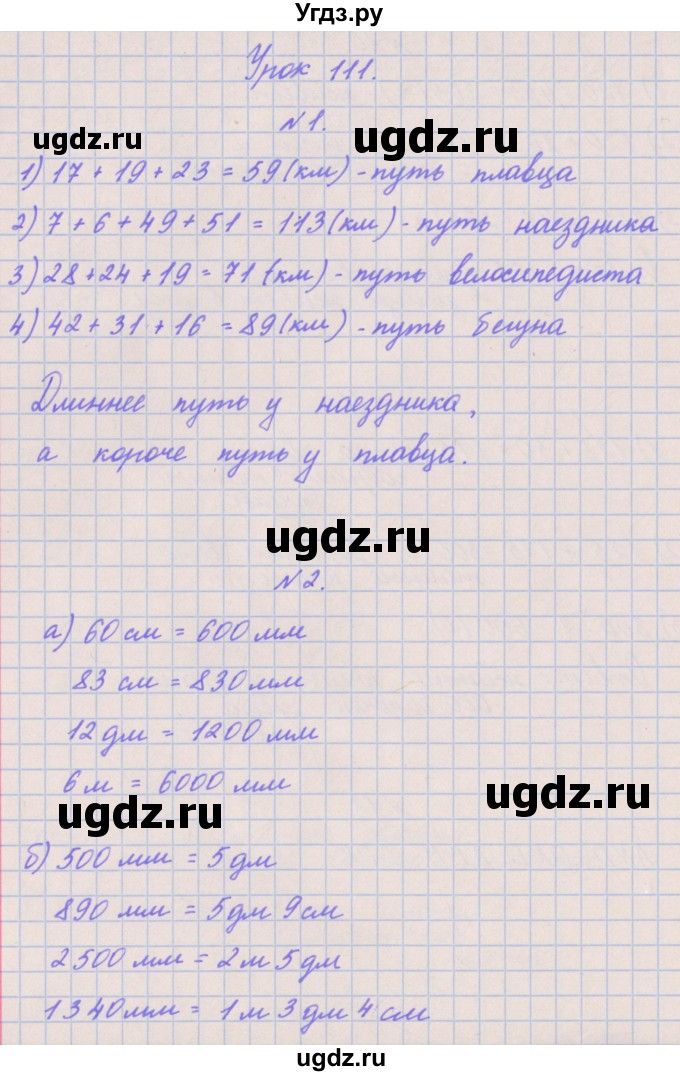 Угдз.ру
Урок 111.
ugdz.ru
ugdz.ru
№1.
1) 17 + 19 + 23 = 59 (км) - путь плавца
2) 7 + 6 + 49 + 51 = 113 (км) - путь наездника
3) 28 + 24 + 19 = 71 (км) - путь велосипедиста
4) 42 + 31 + 16 = 89 (км) - путь бегуна
Длиннее путь у наездника,
а короче путь у плавца.
ugdz.ru
№2.
а) 60 см = 600 мм
83 см = 830 мм
12 дм = 1200 мм
6 м = 6000 мм
ugdz.ru
ugdz.ru
б) 500 мм = 5 дм
890 мм = 5 дм 9 см
2500 мм = 2 м 5 дм
1340 мм = 1 м 3 дм 4 см
ugdz.ru